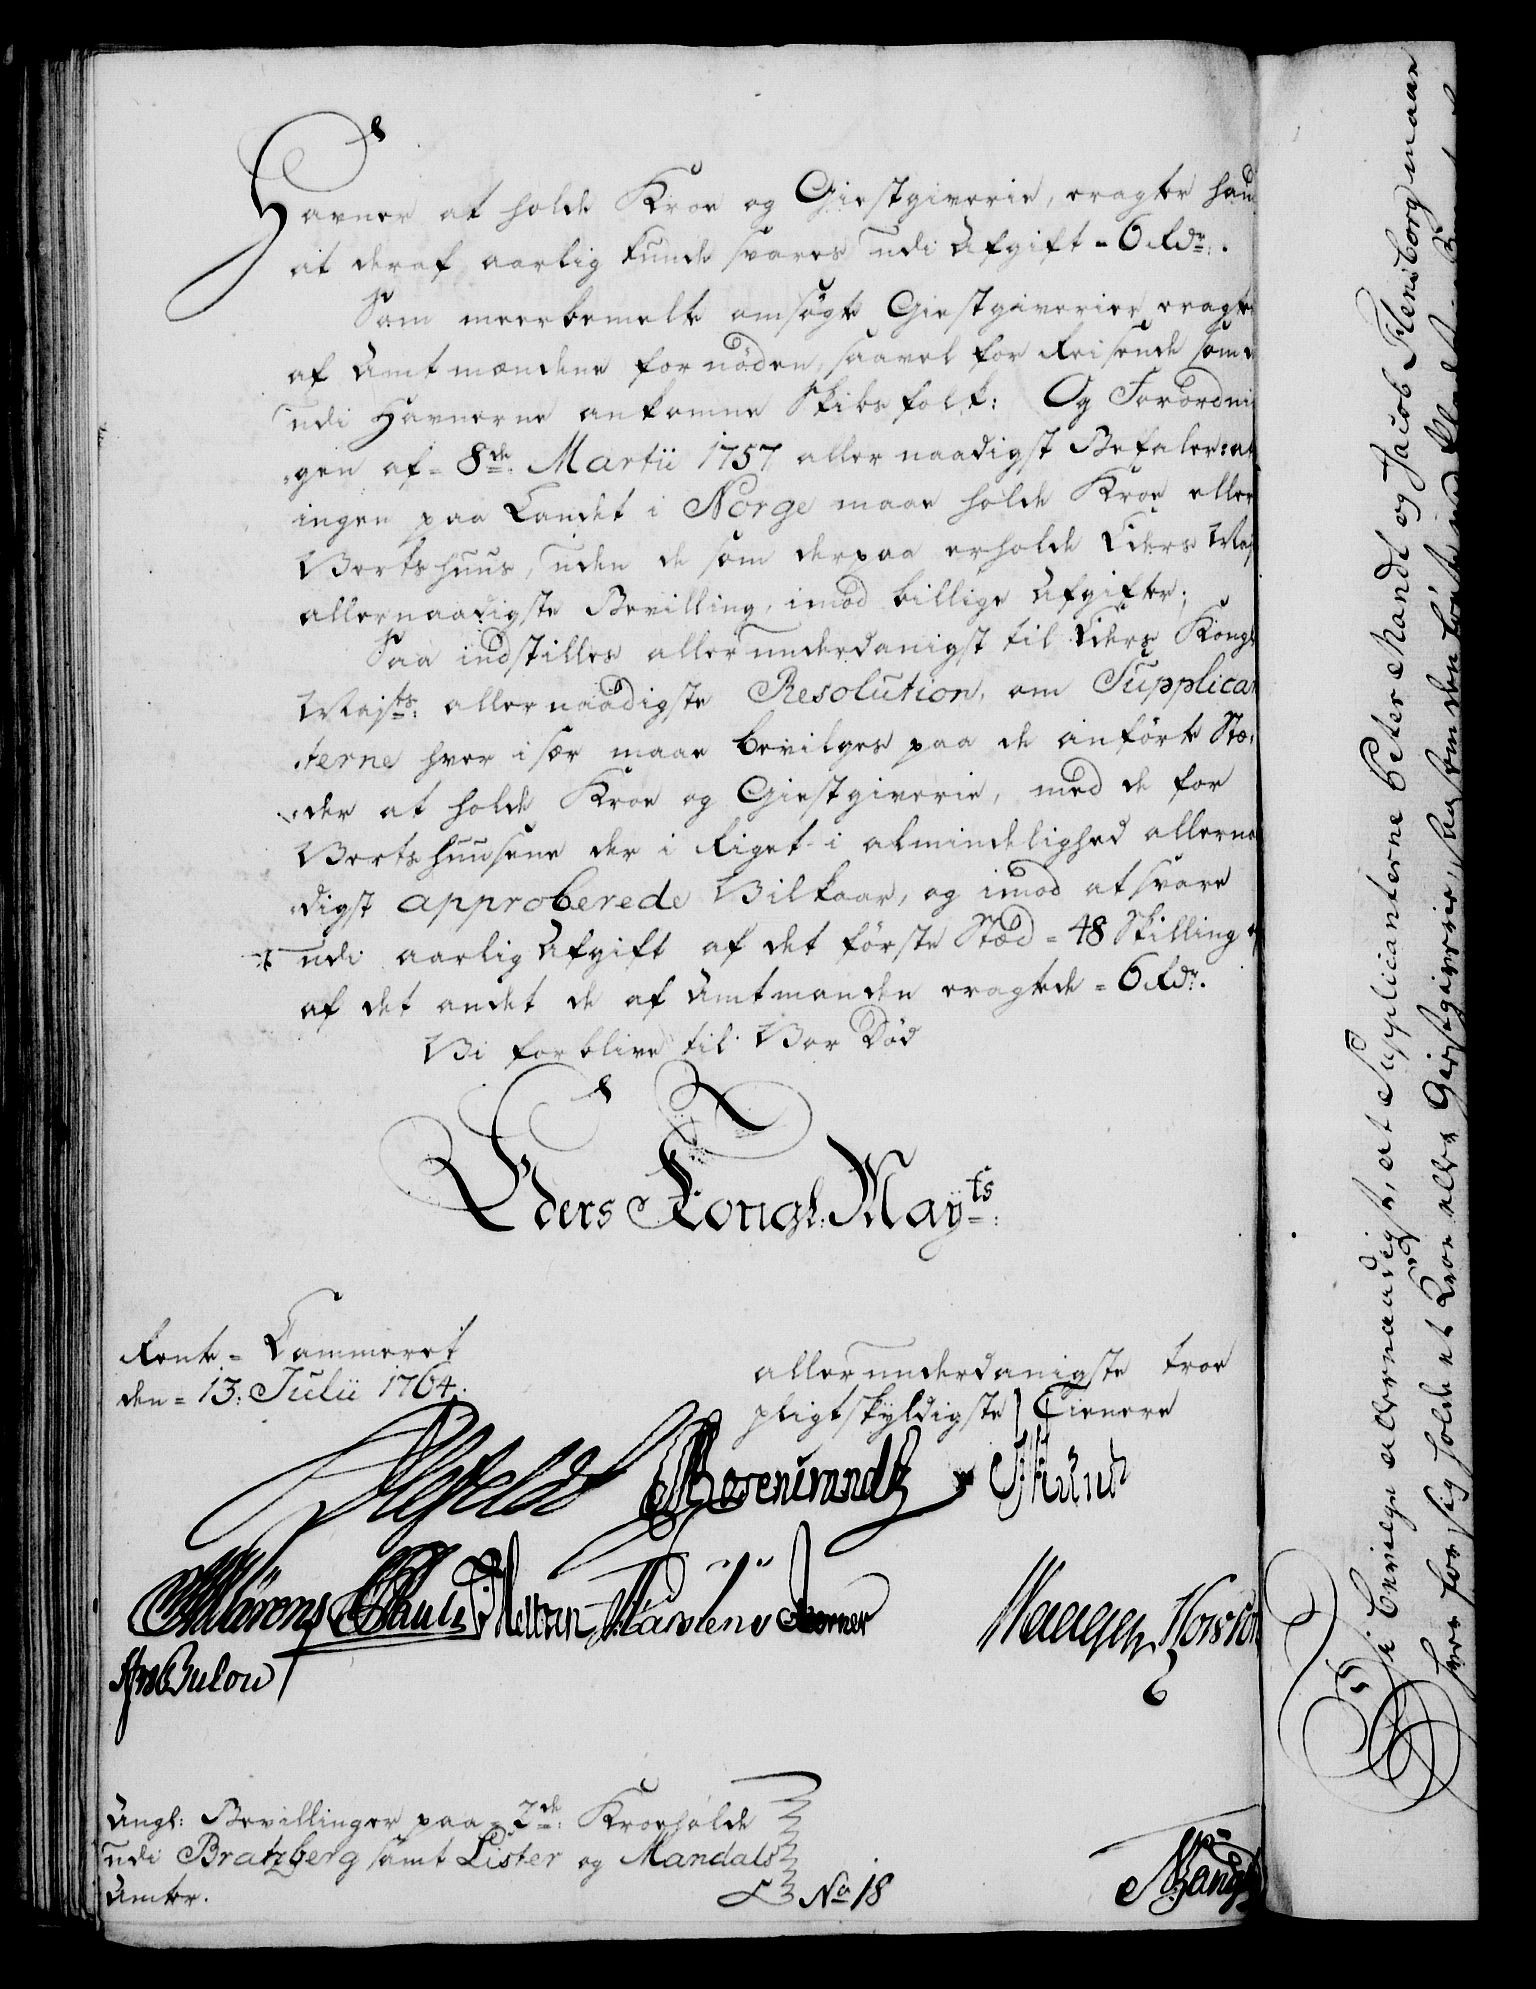 Havner at holde Kroe og Giestgiverie, eragter hand
at deraf aarlig kunde svares udi Afgift = 6 Rdr:.
Som meerbemelte omsøgte Giestgiverier eragtes
af Amtmændene fornøden, saavel for Reisende som
udi Havnerne ankomne Skibsfolk: Og Forordnin-
gen af = 8de: Martii 1757 allernaadigst Befaler: at
ingen paa Landet i Norge maae holde Kroe eller
Vertshuus, uden de som derpaa erholde Eders May
allernaadigste Bevilling, imod billige Afgifter;
Saa indstilles allerunderdanigst til Eders Kongl
Mayts: allernaadigste Resolution, om Supplican
terne hver især maae bevilges paa de anførte Stæ-
der at holde Kroe og Giestgiverie, med de for
Vertshuusene der i Riget i almindelighed allerna
digst approberede Vilkaar, og imod at svare
udi aarlig Afgift af det første Stæd = 48 Skilling
af det andet de af Amtmanden eragtede = 6 Rdr.
Vi forblive til Vor Død
Eders Kongl: Mayts:
Rente = Cammeret
den = 13: Julii 1764.
allerunderdanigste troe
pligtskyldigste Tienere
Ahlefeldt Rosencrandtz
Martens
Bulow
Angl: Bevillinger paa = 2de: Kroehølde
udi Bratzberg samt Lister og Mandals
Amter.
No 18
Vi bevilge allernaadigst, at Supplicanterne Peter Mandt og Jacob Flensborg maae
hver for sig holde et Kroe eller Giestgiverie, saa som den første ved